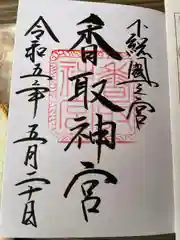 下総國一之宮
香取神宮
令和五年五月二十日